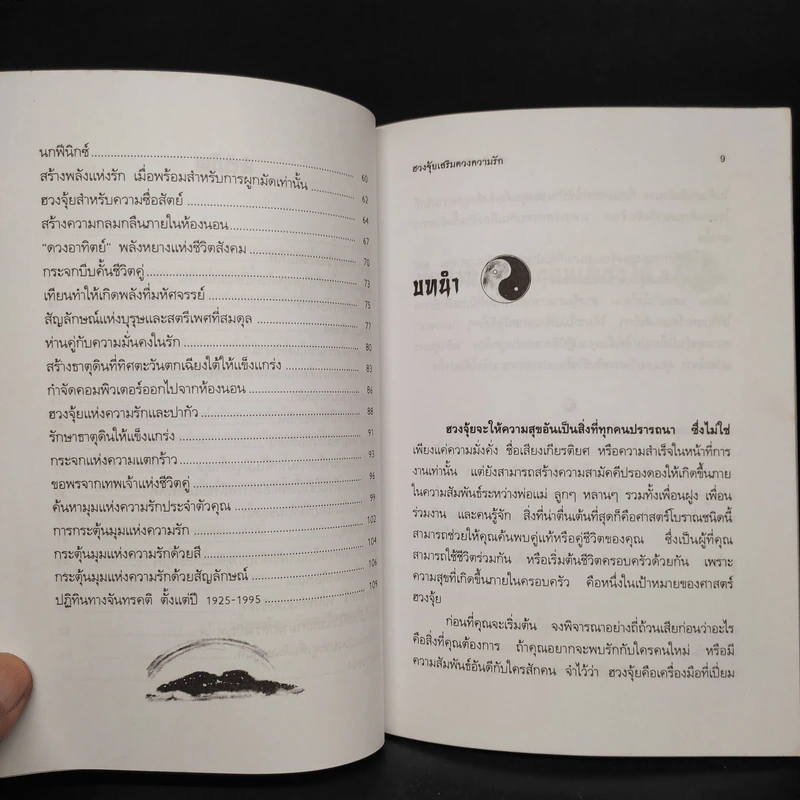 นกฟีนิกซ์ 60
สร้างพลังแห่งรัก เมื่อพร้อมสำหรับการผูกมัดเท่านั้น 62
ฮวงจุ้ยสำหรับความซื่อสัตย์ 64
สร้างความกลมกลืนภายในห้องนอน 67
"ดวงอาทิตย์" พลังหยางแห่งชีวิตสังคม 70
กระจกบีบคั้นชีวิตคู่ 73
เทียนทำให้เกิดพลังที่มหัศจรรย์ 75
สัญลักษณ์แห่งบุรุษและสตรีเพศที่สมดุล 77
ห่านคู่กับความมั่นคงในรัก 80
สร้างธาตุดินที่ทิศตะวันตกเฉียงใต้ให้แข็งแกร่ง 83
กำจัดคอมพิวเตอร์ออกไปจากห้องนอน 86
ฮวงจุ้ยแห่งความรักและปากัว 88
รักษาธาตุดินให้แข็งแกร่ง 91
กระจกแห่งความแตกร้าว 93
ขอพรจากเทพเจ้าแห่งชีวิตคู่ 96
ค้นหามุมแห่งความรักประจำตัวคุณ 99
การกระตุ้นมุมแห่งความรัก 102
กระตุ้นมุมแห่งความรักด้วยสี 104
กระตุ้นมุมแห่งความรักด้วยสัญลักษณ์ 106
ปฏิทินทางจันทรคติ ตั้งแต่ปี 1925-1995 109
ฮวงจุ้ยเสริมดวงความรัก 9
บทนำ
ฮวงจุ้ยจะให้ความสุขอันเป็นสิ่งที่ทุกคนปรารถนา ซึ่งไม่ใช่
เพียงแค่ความมั่งคั่ง ชื่อเสียงเกียรติยศ หรือความสำเร็จในหน้าที่การ
งานเท่านั้น แต่ยังสามารถสร้างความสามัคคีปรองดองให้เกิดขึ้นภาย
ในความสัมพันธ์ระหว่างพ่อแม่ ลูกๆ หลานๆ รวมทั้งเพื่อนฝูง เพื่อน
ร่วมงาน และคนรู้จัก สิ่งที่น่าตื่นเต้นที่สุดก็คือศาสตร์โบราณชนิดนี้
สามารถช่วยให้คุณค้นพบคู่แท้หรือคู่ชีวิตของคุณ ซึ่งเป็นผู้ที่คุณ
สามารถใช้ชีวิตร่วมกัน หรือเริ่มต้นชีวิตครอบครัวด้วยกัน เพราะ
ความสุขที่เกิดขึ้นภายในครอบครัว คือหนึ่งในเป้าหมายของศาสตร์
ฮวงจุ้ย
ก่อนที่คุณจะเริ่มต้น จงพิจารณาอย่างถี่ถ้วนเสียก่อนว่าอะไร
คือสิ่งที่คุณต้องการ ถ้าคุณอยากจะพบรักกับใครคนใหม่ หรือมี
ความสัมพันธ์อันดีกับใครสักคน จำไว้ว่า ฮวงจุ้ยคือเครื่องมือที่เปี่ยม